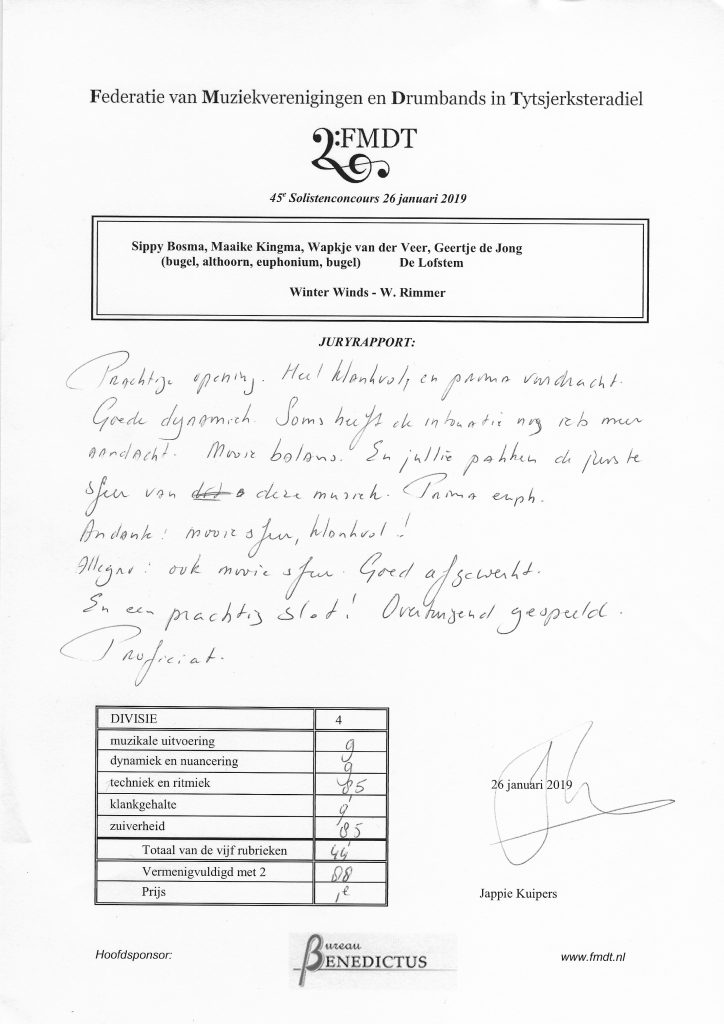 Federatie van Muziekverenigingen en Drumbands in Tytsjerksteradiel
FMDT
45e Solistenconcours 26 januari 2019
Sippy Bosma, Maaike Kingma, Wapkje van der Veer, Geertje de Jong
(bugel, althoorn, euphonium, bugel) De Lofstem
Winter Winds - W. Rimmer
JURYRAPPORT:
Prachtige opening. Heel klankvol, en prima voordracht.
Goede dynamiek. Soms heeft de intonatie nog iets meer
aandacht. Mooie balans. En jullie pakken de juiste
sfeer van deze muziek. Prima euph.
Andante: mooie sfeer, klankvol!
Allegro: ook mooie sfeer. Goed afgewerkt.
En een prachtig slot! Overtuigend gespeeld.
Proficiat.
DIVISIE 4
muzikale uitvoering 9
dynamiek en nuancering 9
techniek en ritmiek 85
klankgehalte 9
zuiverheid 85
Totaal van de vijf rubrieken 44
Vermenigvuldigd met 2 88
Prijs 1e
26 januari 2019
Jappie Kuipers
Hoofdsponsor:
Bureau
BENEDICTUS
www.fmdt.nl